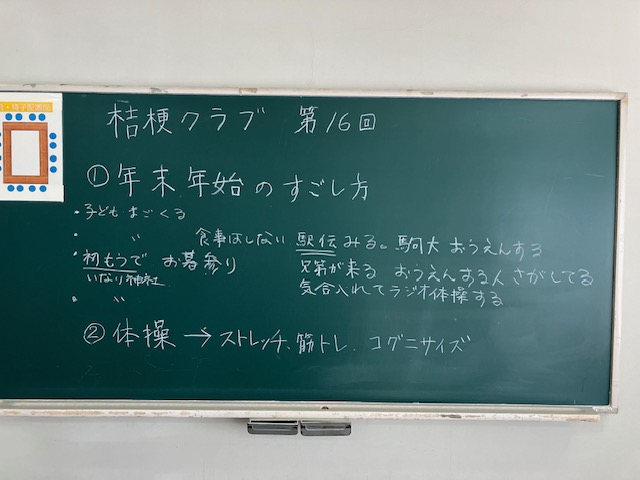 ・椅子配置図
桔梗クラブ 第16回
①年末年始のすごし方
・子どもまごくる
・ 〃 食事はしない 駅伝みる。駒大おうえんする
・初もうで お墓参り 兄弟が来る おうえんする人さがしてる
いなり神社 気合入れてラジオ体操する
・ 〃
②体操→ストレッチ、筋トレ、コグニサイズ